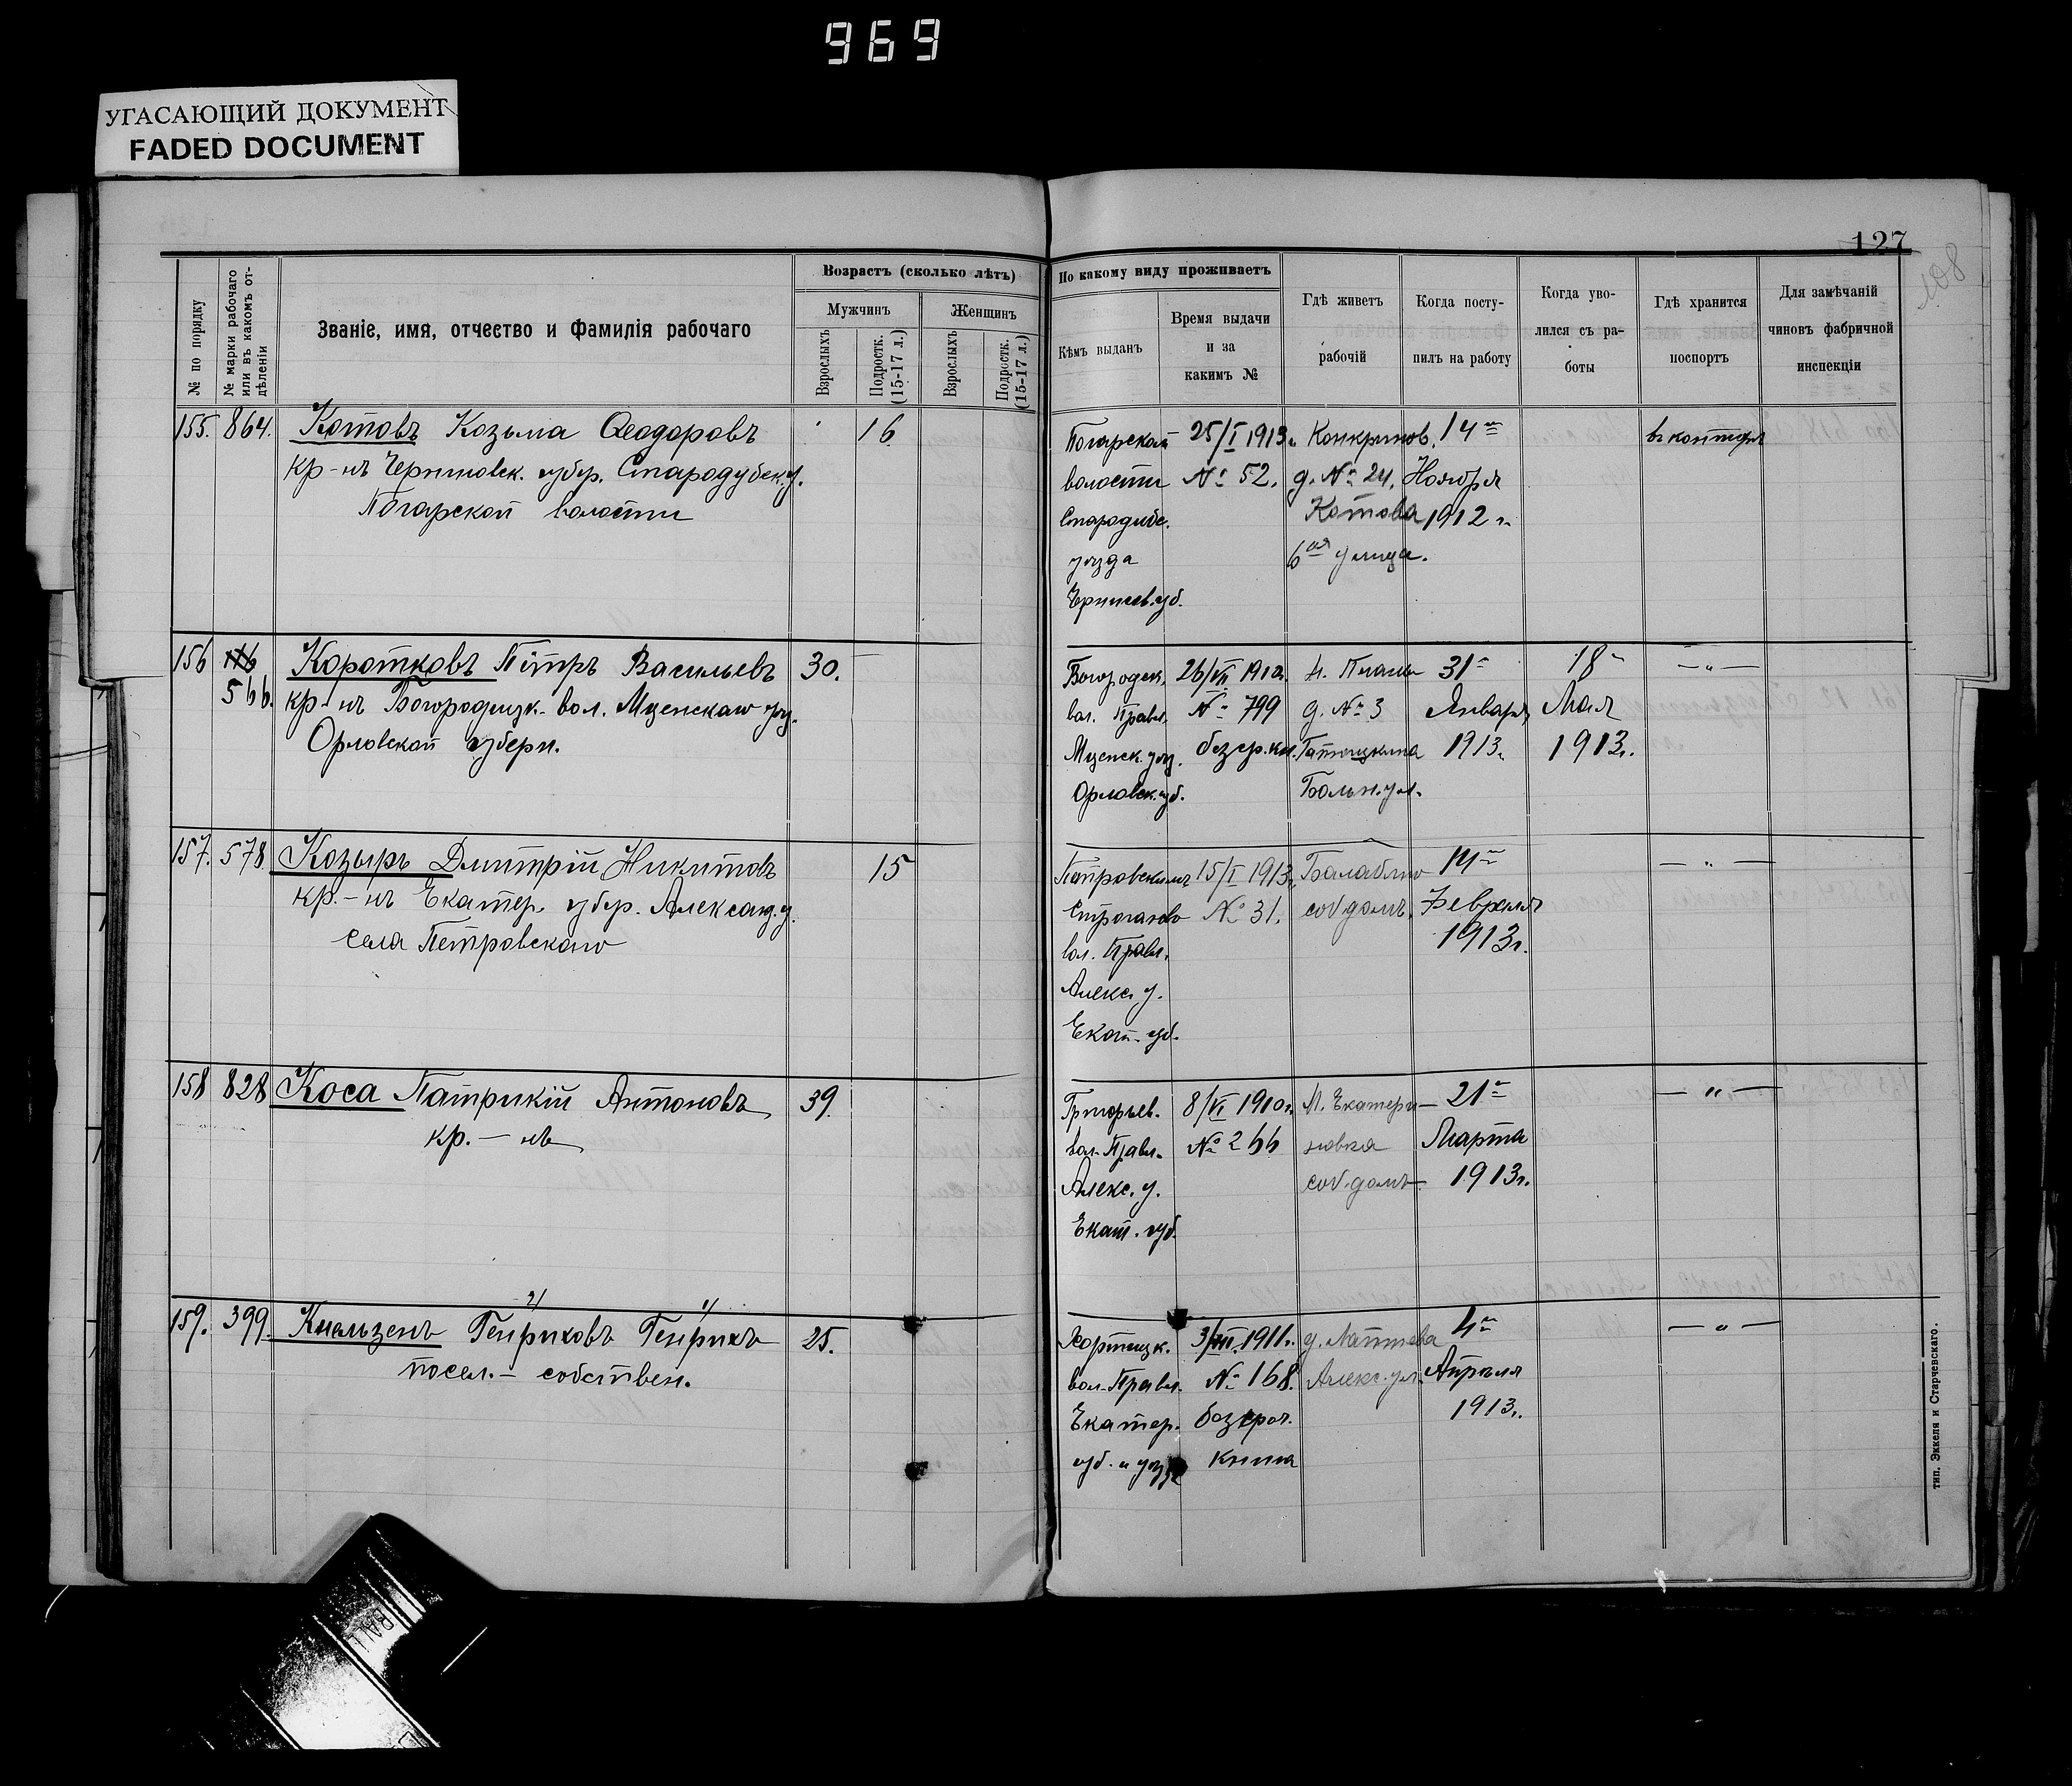 969
УГАСАЮЩИЙ ДОКУМЕНТ
FADED DOCUMENT
127
108
№ по порядку
№ марки рабочаго или въ какомъ отдѣленіи
Званіе, имя, отчество и фамилія рабочаго
Возрастъ (сколько лѣтъ)
Мужчинъ
Женщинъ
Взрослыхъ
Подростк. (15-17 л.)
Взрослыхъ
Подростк. (15-17 л.)
По какому виду проживаетъ
Кѣмъ выданъ
Время выдачи
и за
какимъ №
Гдѣ живетъ
рабочій
Когда посту-
пилъ на работу
Когда уво-
лился съ ра-
боты
Гдѣ хранится
поспортъ
Для замѣчаній
чиновъ фабричной
инспекціи
155. 864. Котовъ Козьма Ѳеодоровъ 16
кр-нъ Черниговск. губр. Стародубск. у.
Погарской волости
Погарской
волости
Стародубс.
уѣзда
Чернигов. губ.
25/I 1913 г.
№ 52.
Конкринов.
д. № 24,
Котова
6ая улица.
14го
Ноября
1912 г.
въ конторѣ
156 566. Коротковъ Пётръ Васильевъ 30.
кр-нъ Богородицк. вол. Мценскаго уѣз.
Орловской губерн.
Богородск.
вол. Правл.
Мценск. уѣз.
Орловск. губ.
26/VII 1912г.
№ 799
безср. кн.
д. № 3
Больн. ул.
31го
Января
1913г.
18го
Мая
1913г.
— " —
157. 578. Козырь Дмитрій Никитовъ 15
кр.-нъ Екатер. губр. Александ. у.
села Петровскаго
Петровскимъ
вол. Правл.
Алекс. у.
Екат. губ.
15/I 1913г.
№ 31.
Балабино
соб. домъ.
14го
Февраля
1913г.
— " —
158 828 Коса Патрикій Антоновъ 39.
кр.-нъ
Григорьев.
вол. Правл.
Алекс. у.
Екат. губ.
8/VI 1910г.
№ 266
М. Екатери-
новка
соб. домъ
21го
Марта
1913г.
— " —
2/ 1/
159. 399. Кнельзенъ Генриховъ Генрихъ 25.
посел.- собствен.
Хортицк.
вол. Правл.
Екатер.
губ. и уѣзда
3/VIII 1911г.
№ 168.
безсроч.
книга
д. Лаптева
Алекс. ул.
4го
Апрѣля
1913г.
— " —
тип. Эккеля и Старчевскаго.